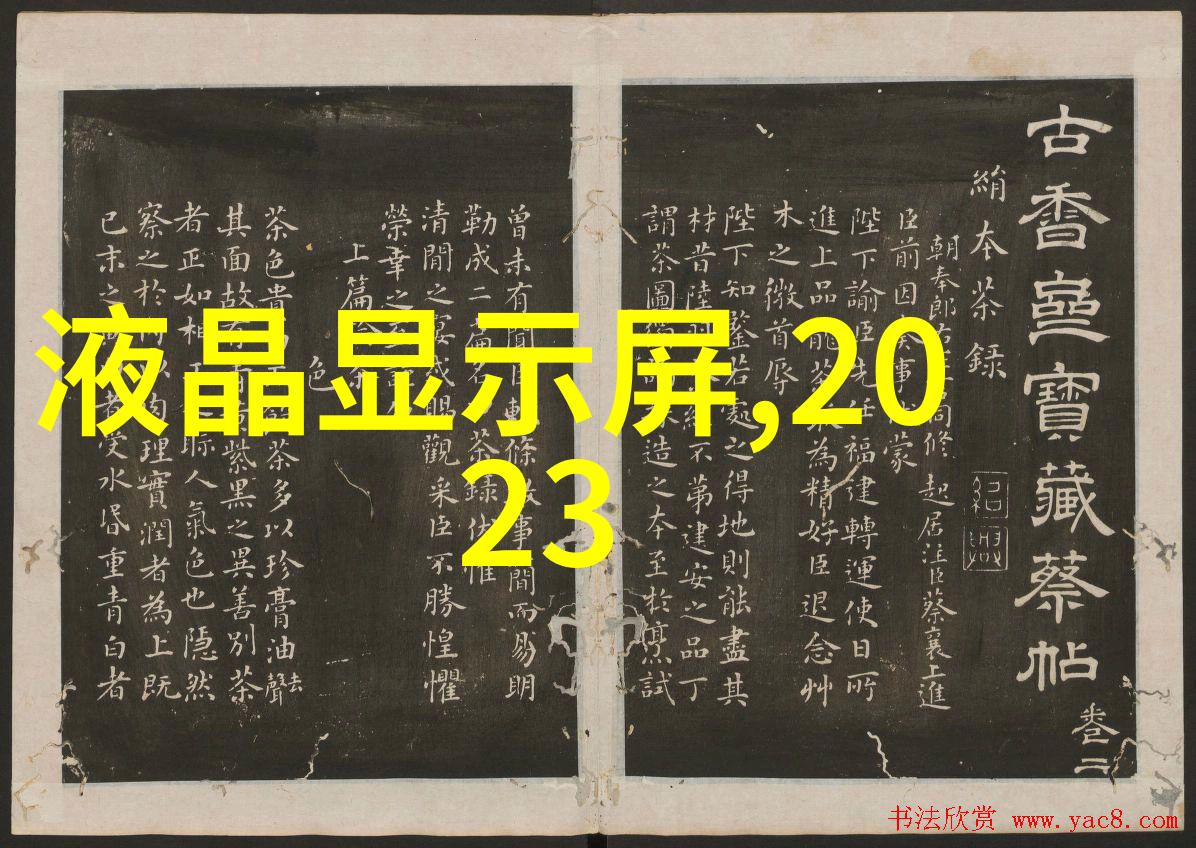 液晶显示屏,20
23
古香齋寶藏蔡帖 卷二
絹本茶錄
朝奉郎右同修起居注臣蔡襄上進
臣前因奏事蒙
陛下諭臣先任福建轉運使日所
進上品龍茶為精好臣退念艸
木之微首辱
陛下知鑒若處之得地則能盡其
材昔陸經不第建安之品丁
謂茶圖造之本至於烹試
曾未有聞臣輒條數事簡而易明
勒成二篇名茶錄伏惟
清閒之宴或賜觀采臣不勝惶懼
榮幸之
上篇論茶
色
茶色貴茶多以珍膏油去聲
其面故有青黃紫黑之異善別茶
者正如相眎人氣色也隱然
察之於內以肉理實潤者為上既
已末之者受水昏重青白者
书法欣赏 www.yac8.com